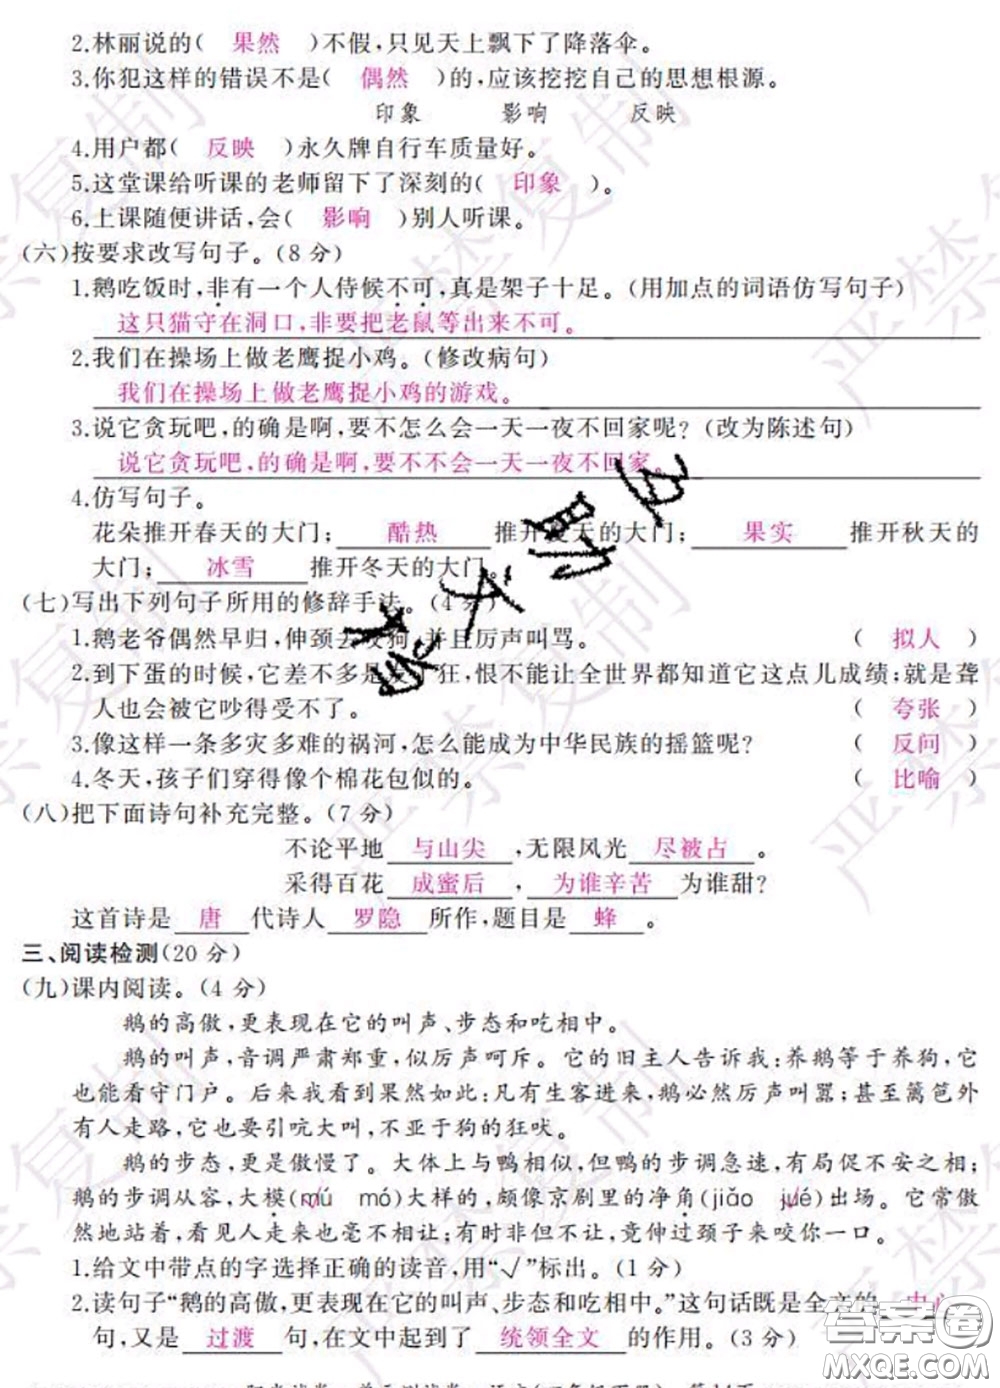 2.林丽说的( 果然 )不假,只见天上飘下了降落伞。
3.你犯这样的错误不是( 偶然 )的,应该挖挖自己的思想根源。
印象 影响 反映
4.用户都( 反映 )永久牌自行车质量好。
5.这堂课给听课的老师留下了深刻的( 印象 )。
6.上课随便讲话,会( 影响 )别人听课。
(六)按要求改写句子。(8分)
1.鹅吃饭时,非有一个人侍候不可,真是架子十足。(用加点的词语仿写句子)
这只猫守在洞口,非要把老鼠等出来不可。
2.我们在操场上做老鹰捉小鸡。(修改病句)
我们在操场上做老鹰捉小鸡的游戏。
3.说它贪玩吧,的确是啊,要不怎么会一天一夜不回家呢?(改为陈述句)
说它贪玩吧,的确是啊,要不不会一天一夜不回家。
4.仿写句子。
花朵推开春天的大门; 酷热 推开夏天的大门; 果实 推开秋天的
大门; 冰雪 推开冬天的大门。
(七)写出下列句子所用的修辞手法。(4分)
1.鹅老爷偶然早归,伸颈去咬狗,并且厉声叫骂。 ( 拟人 )
2.到下蛋的时候,它差不多是发了狂,恨不能让全世界都知道它这点儿成绩;就是聋
人也会被它吵得受不了。 ( 夸张 )
3.像这样一条多灾多难的祸河,怎么能成为中华民族的摇篮呢? ( 反问 )
4.冬天,孩子们穿得像个棉花包似的。 ( 比喻 )
(八)把下面诗句补充完整。(7分)
不论平地 与山尖 ,无限风光 尽被占 。
采得百花 成蜜后 , 为谁辛苦 为谁甜?
这首诗是 唐 代诗人 罗隐 所作,题目是 蜂 。
三、阅读检测(20分)
(九)课内阅读。(4分)
鹅的高傲,更表现在它的叫声、步态和吃相中。
鹅的叫声,音调严肃郑重,似厉声呵斥。它的旧主人告诉我:养鹅等于养狗,它
也能看守门户。后来我看到果然如此:凡有生客进来,鹅必然厉声叫嚣;甚至篱笆外
有人走路,它也要引吭大叫,不亚于狗的狂吠。
鹅的步态,更是傲慢了。大体上与鸭相似,但鸭的步调急速,有局促不安之相;
鹅的步调从容,大模(mú√ mó)大样的,颇像京剧里的净角(jiǎo jué√)出场。它常傲
然地站着,看见人走来也毫不相让;有时非但不让,竟伸过颈子来咬你一口。
1.给文中带点的字选择正确的读音,用“√”标出。(1分)
2.读句子“鹅的高傲,更表现在它的叫声、步态和吃相中。”这句话既是全文的 中心
句,又是 过渡 句,在文中起到了 统领全文 的作用。(3分)
严禁复制
答案圈
MXQE.COM